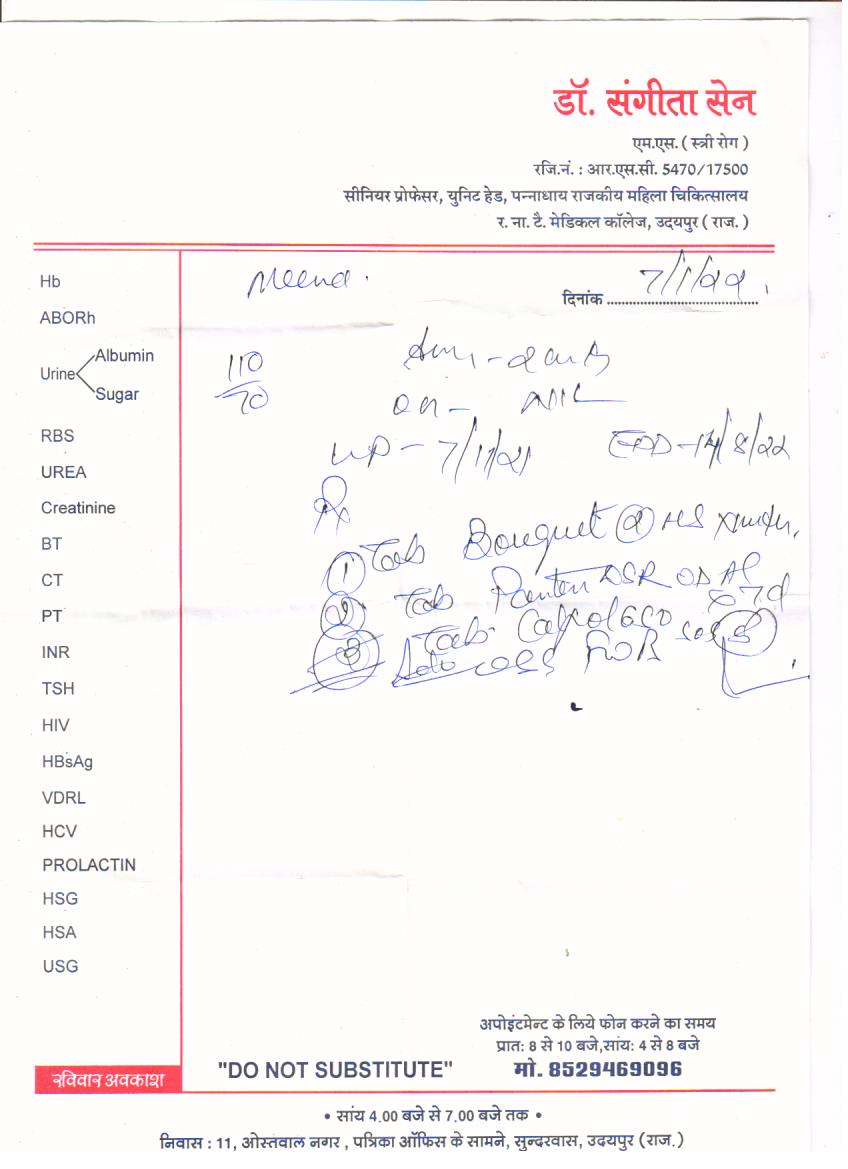 डॉ. संगीता सेन
एम.एस. ( स्त्री रोग )
रजि.नं. : आर.एस.सी. 5470/17500
सीनियर प्रोफेसर, युनिट हेड, पन्नाधाय राजकीय महिला चिकित्सालय
र. ना. टै. मेडिकल कॉलेज, उदयपुर ( राज. )
Meena.
दिनांक 7/1/22
Hb
ABORh
Urine Albumin
Sugar
RBS
UREA
Creatinine
BT
CT
PT
INR
TSH
HIV
HBsAg
VDRL
HCV
PROLACTIN
HSG
HSA
USG
110
70
7/11/21 EDD-14/8/22
Rx
① Tab Bouquet @ HS
② Tab Panton DSR OD
③ Tab
"DO NOT SUBSTITUTE"
अपोइंटमेन्ट के लिये फोन करने का समय
प्रात: 8 से 10 बजे,सांय: 4 से 8 बजे
मो. 8529469096
रविवार अवकाश
• सांय 4.00 बजे से 7.00 बजे तक •
निवास : 11, ओस्तवाल नगर , पत्रिका ऑफिस के सामने, सुन्दरवास, उदयपुर (राज.)